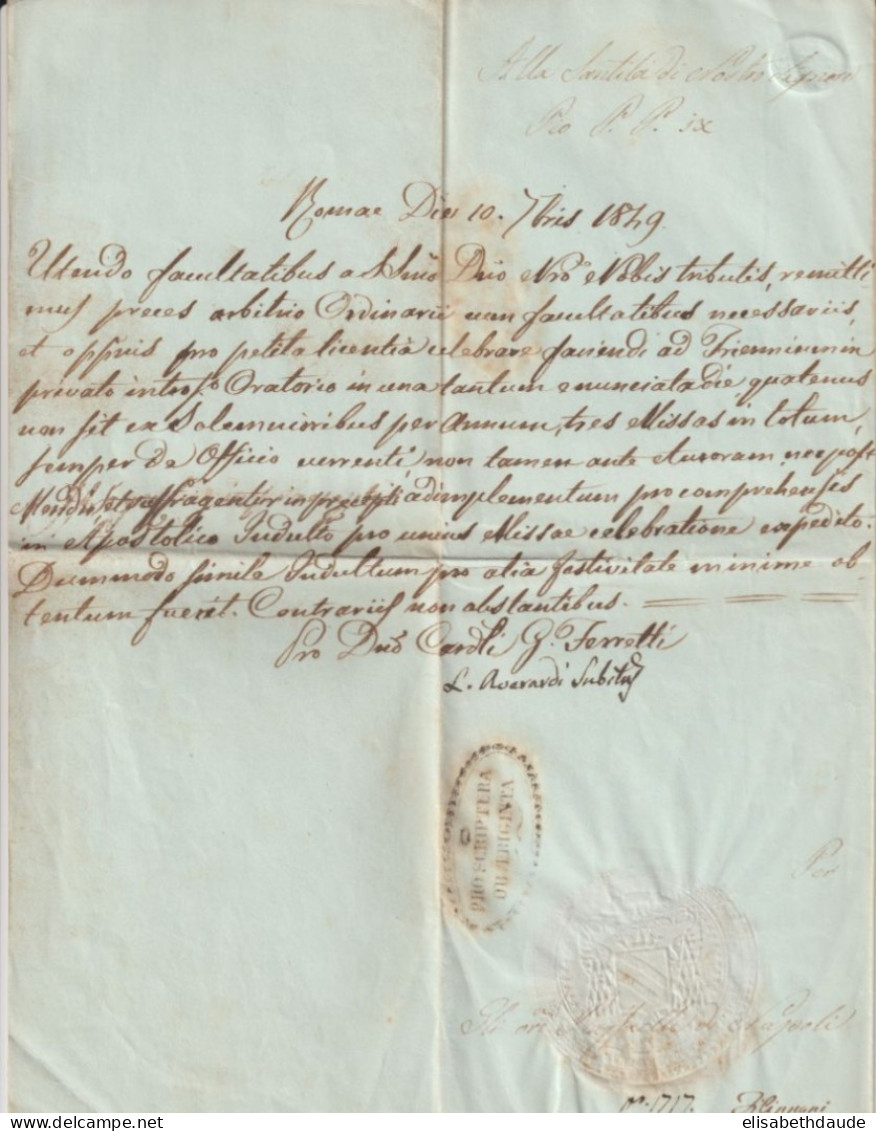 Alla Santità di Nostro Signore
Pio P. P. IX
Romae Die 10. 7bris 1849.
Utendo facultatibus a SSmo Dno Nro Nobis tributis, remitti
mus preces arbitrio Ordinarii cum facultatibus necessariis,
et oppnis pro petita licentia celebrare faciendi ad Triennium in
privato introsc.o Oratorio in una tantum enunciata die quatenus
non sit ex Solemnioribus per Annum, tres Missas in totum,
semper de Officio currenti non tamen ante Auroram, nec post
Meridi, et suffragentur in precepti adimplementum pro comprehensis
in Apostolico Indulto pro unius Missae celebratione expedito.
Dummodo simile Indultum pro alia festivitate minime ob-
tentum fuerit. Contrariis non obstantibus.
Pro Dno Cardli G. Ferretti
L. Averardi Subitus
PRO SCRIPTERA
OBÆRIGINTA
Per
Gli Napoli
no. 1717.
elisabethdaude